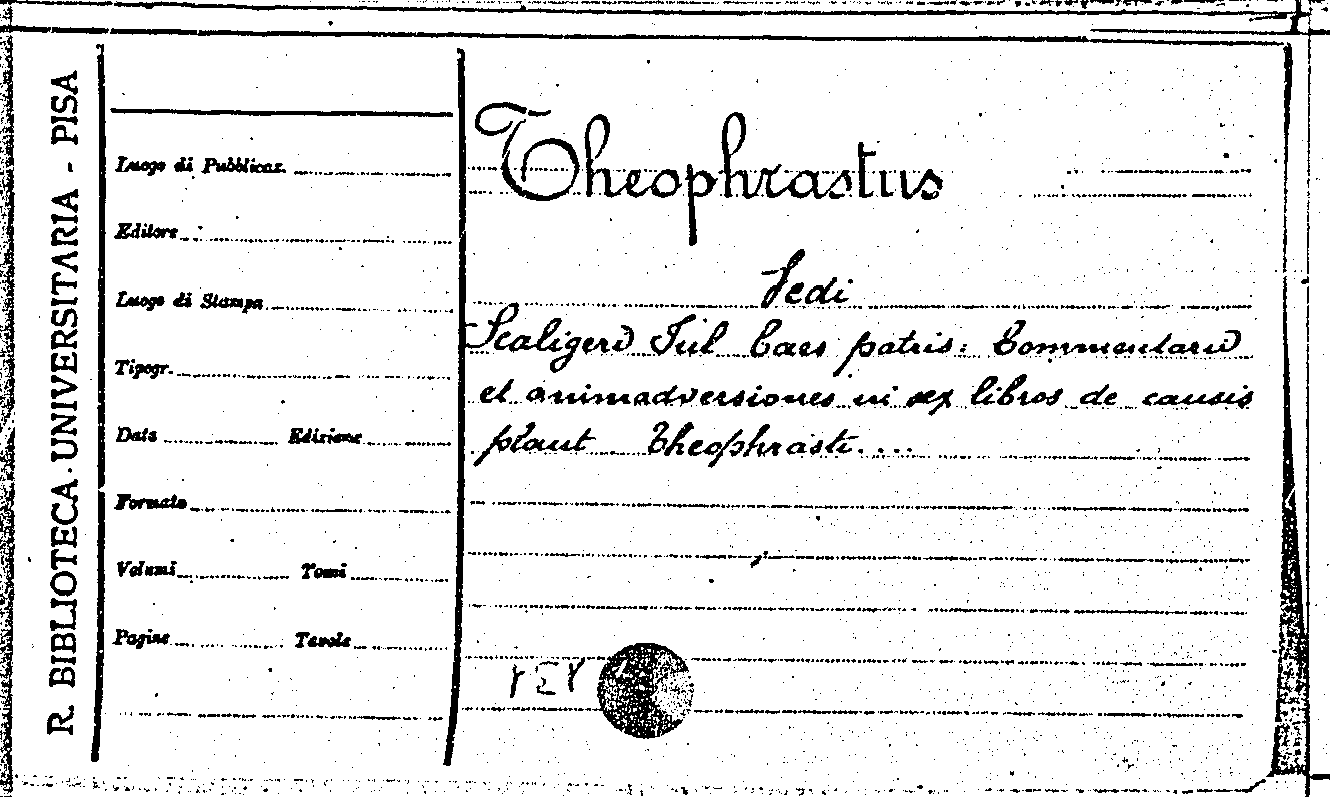 R. BIBLIOTECA UNIVERSITARIA - PISA
Luogo di Pubblicaz.
Editore
Luogo di Stampa
Tipogr.
Data Edizione
Formato
Volumi Tomi
Pagine Tavole
Theophrastus
Vedi
Scaligeri Iul Caes patris: Commentarii
et animadversiones in sex libros de causis
plant Theophrasti....